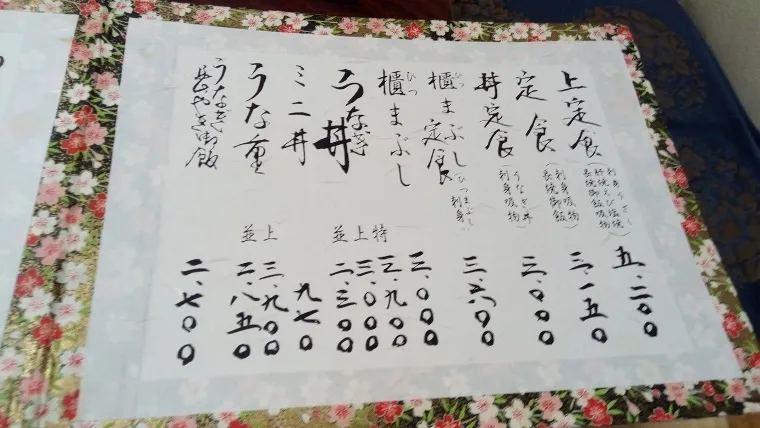 上定食
(刺身うざく
肝焼えび塩焼
長焼御飯吸物)
五.二〇〇
定食
(刺身吸物
長焼御飯)
三.一五〇
丼定食
(うなぎ丼
刺身吸物)
三.〇〇〇
櫃まぶし定食
ひつ
(ひつまぶし
刺身)
三.六〇〇
櫃まぶし
ひつ
三.〇〇〇
うなぎ丼
特 三.九〇〇
上 三.〇〇〇
並 二.三〇〇
ミニ丼
九七〇
うな重
上 三.九〇〇
並 二.八五〇
うなぎ
長やき御飯
二.七〇〇